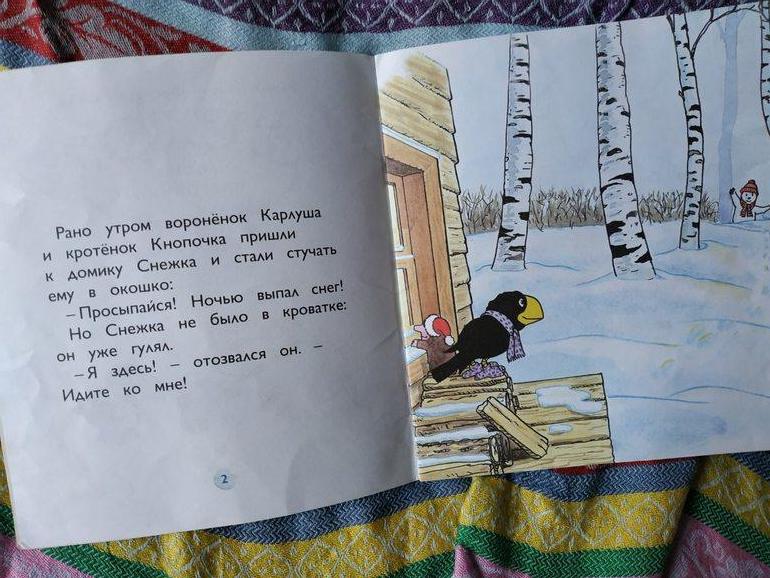 Рано утром воронёнок Карлуша
и кротёнок Кнопочка пришли
к домику Снежка и стали стучать
ему в окошко:
– Просыпайся! Ночью выпал снег!
Но Снежка не было в кроватке:
он уже гулял.
– Я здесь! – отозвался он. –
Идите ко мне!
2